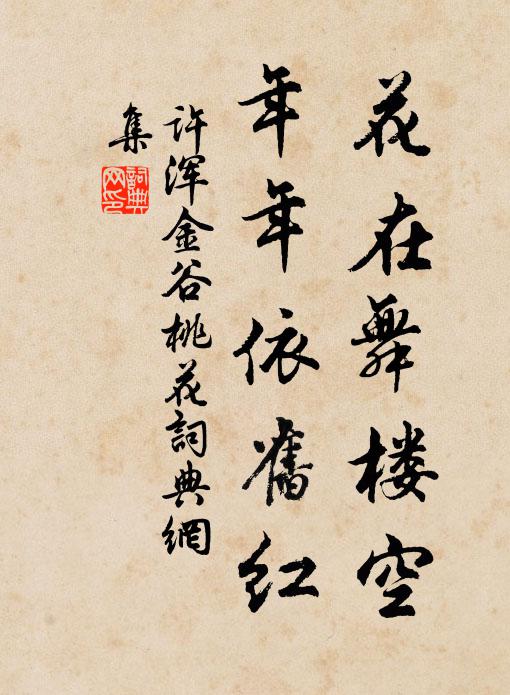 花在舞楼空
年年依舊红
许浑金谷桃花詞典網
集
詞典网印